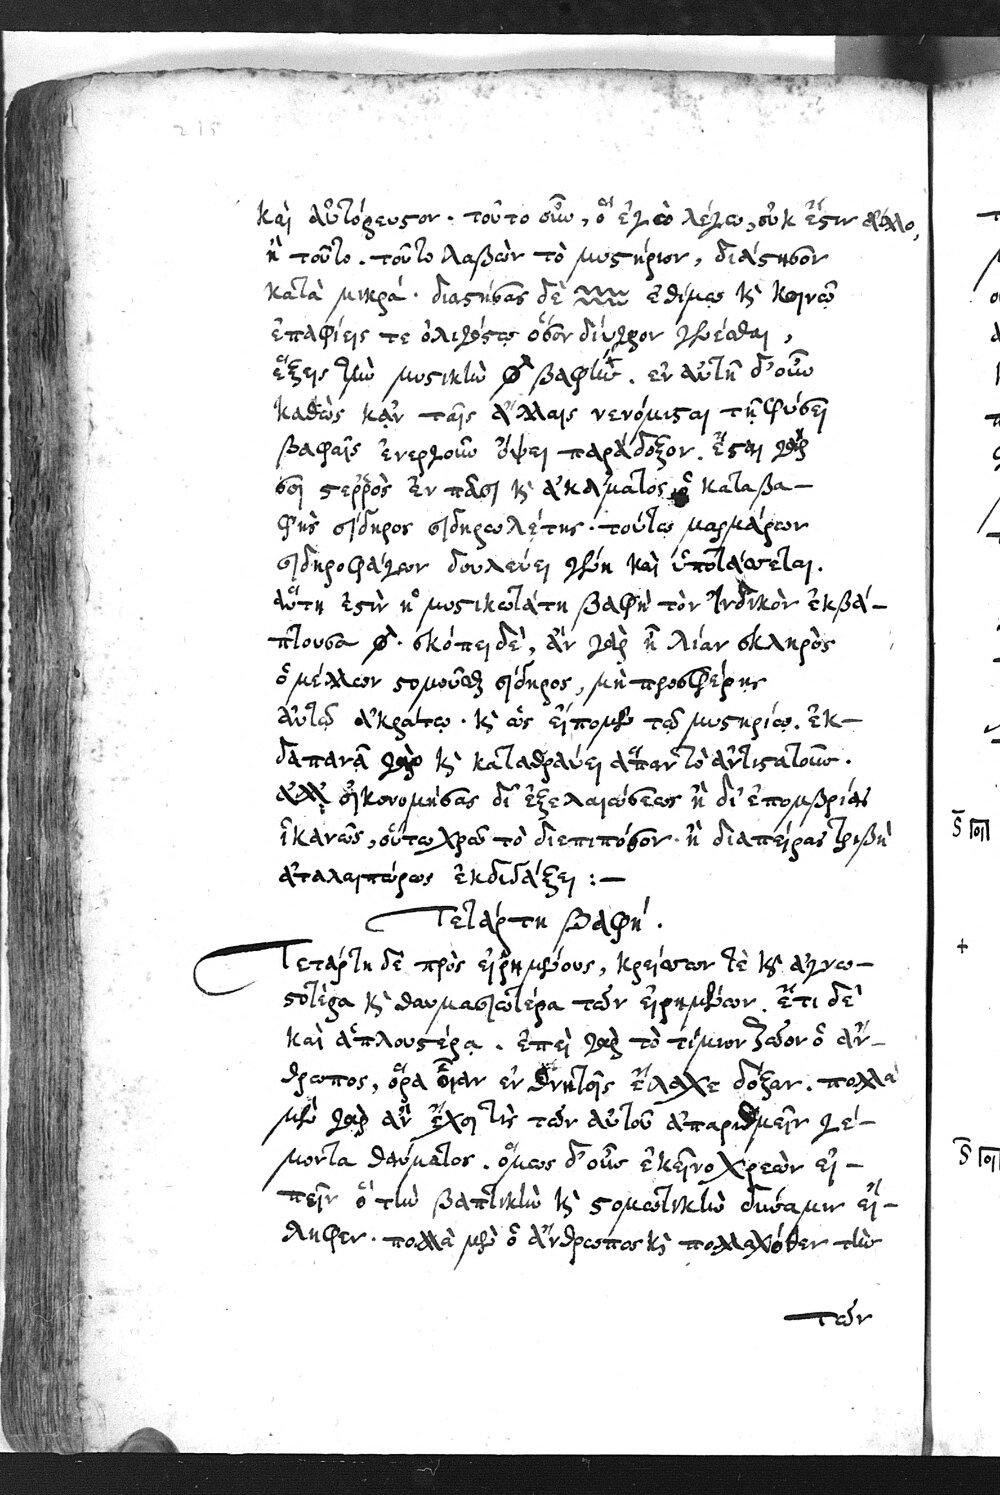 215
καὶ αὐτόρευστον. τοῦτο οὖν, ὃ ἐγὼ λέγω, οὐκ ἔστιν ἄλλο,
ἢ τοῦτο. τοῦτο λαβὼν τὸ μυστήριον, διάστησον
κατὰ μικρά. διαστήσας δὲ ἑθίμῳ κὶ κοινῷ
ἐπαφίεις τε ὀλιγόστῳ ὅσον δίυγρον γενέσθαι,
ἕξεις τὴν μυστικὴν βαφήν. ἐν αὐτῇ δ' οὖν
καθὼς κἀν ταῖς ἄλλαις νενόμισται τῇ φύσει
βαφαῖς ἐνεργοῦν ὄψει παράδοξον. ἔσται γάρ
σοι στερρὸς ἐν πᾶσι κὶ ἀκάματος ὁ καταβα–
φῆς σίδηρος σιδηρωλέτης. τούτῳ μαρμάρων
σιδηροφάγων δουλεύει γένη καὶ ὑποτάσσεται.
αὕτη ἐστὶν ἡ μυστικωτάτη βαφὴ τὸν Ἰνδικὸν ἐκβά–
πτουσα . σκόπει δὲ, ἂν γὰρ ᾖ λίαν σκληρὸς
ὁ μέλλων στομοῦσθαι σίδηρος, μὴ προσφέρῃς
αὐτῷ ἀκράτῳ. κὶ ὡς εἴπομεν τῷ μυστηρίῳ. ἐκ–
δαπανᾷ γὰρ κὶ καταθραύει ἅπαν τὸ ἀντιστατοῦν.
ἀλλ' οἰκονομήσας δι' ἐξελαιώσεως ἢ δι' ἐπομβρίας
ἱκανῶς, οὕτω χρῶ τὸ διεπιπόσον. ἢ διαπείρας τριβὴ
ἀταλαιπώρως ἐκδιδάξει :–
Τετάρτη βαφή.
Τετάρτη δὲ πρὸς εἰρημένους, κρείσσων τὲ κὶ ἀγνω–
στοτέρα κὶ θαυμασιωτέρα τῶν εἰρημένων. ἔτι δὲ
καὶ ἁπλουστέρα. ἐπεὶ γὰρ τὸ τίμιον ζῶον ὁ ἄν–
θρωπος, ὅρα οἵαν ἐν θνητοῖς ἔλαχε δόξαν. πολλὰ
μὲν γὰρ ἂν ἔχοι τὶς τῶν αὐτοῦ ἀπαριθμεῖν γέ–
μοντα θαύματος. ὅμως δ' οὖν ἐκεῖνο χρεὼν εἰ–
πεῖν ὃ τὴν βαπτικὴν κὶ στομωτικὴν δύναμιν εἴ–
ληφεν. πολλὰ μὲν ὁ ἄνθρωπος κὶ πολλαχόθεν τὴν
τῶν